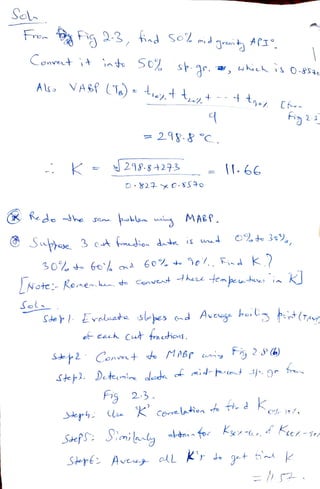 Soln
From Fig 2.3, find 50% mid gravity API°.
Convert it into 50% sp. gr. , which is 0.8570
Also VABP (Tb) = t10% + t20% + -- + t90% [from
9 Fig 2.3]
= 298.8 °C.
∴ K = ∛298.8+273 = 11.66
0.827 × 0.8570
* Redo the same problem using MABP.
* Suppose 3 cut fraction data is used 0% to 30%,
30% to 60% and 60% to 90%. Find K.?
[Note:- Remember to convert these temperatures in K]
Soln
Step 1. Evaluate slopes and Average boiling point
of each cut fractions.
Step 2. Convert to MABP using Fig 2.8 (b)
Step 3. Determine data of mid-percent sp. gr from
Fig 2.3.
Step 4. Use 'K' correlation to find K
Step 5: Similarly obtain for &
Step 6: Average all K's to get final K
= 11.57.